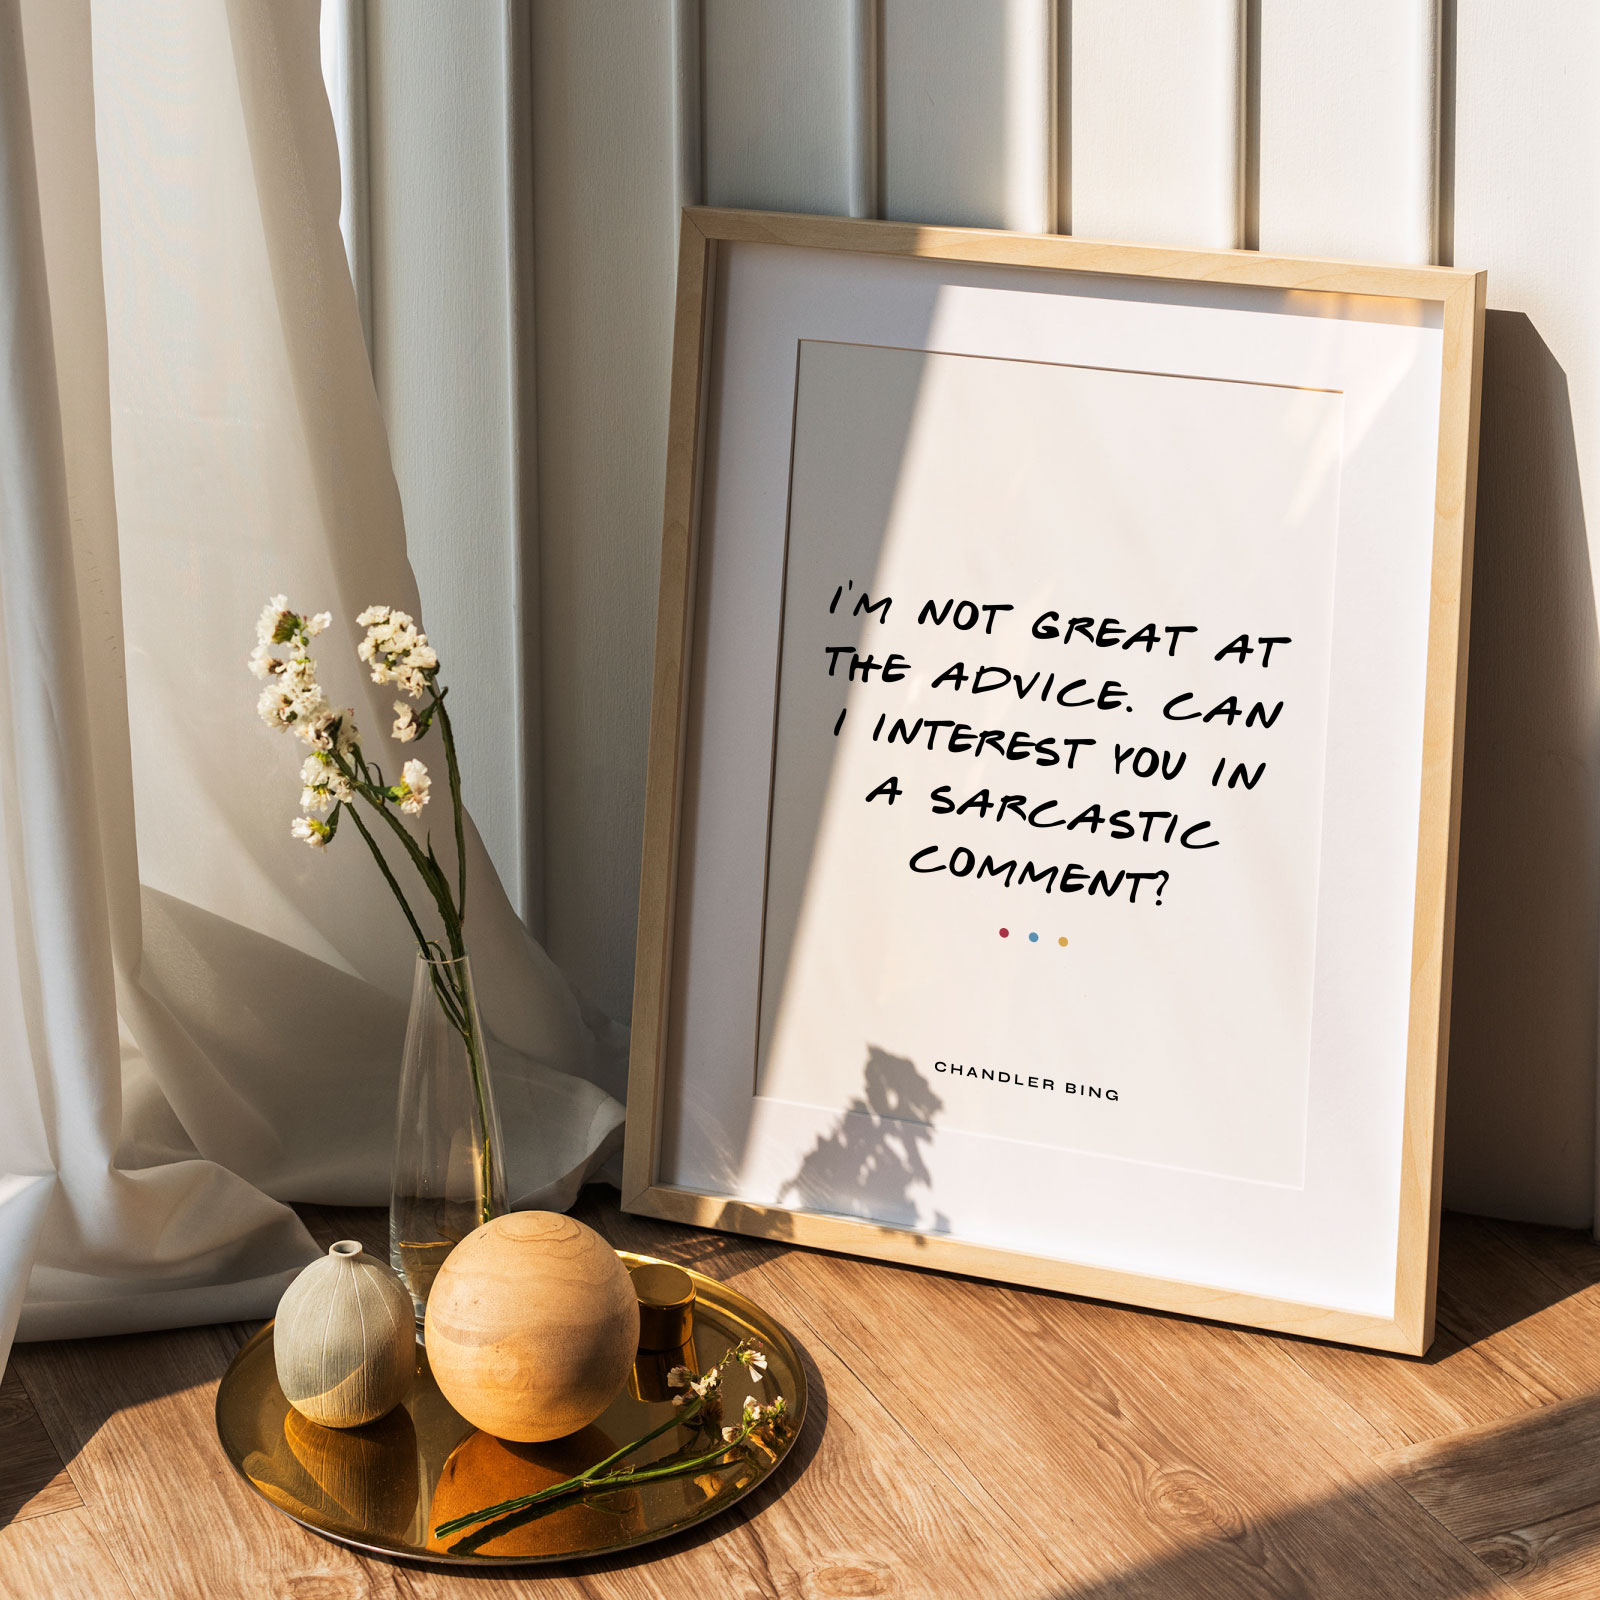 I'M NOT GREAT AT
THE ADVICE. CAN
I INTEREST YOU IN
A SARCASTIC
COMMENT?
CHANDLER BING